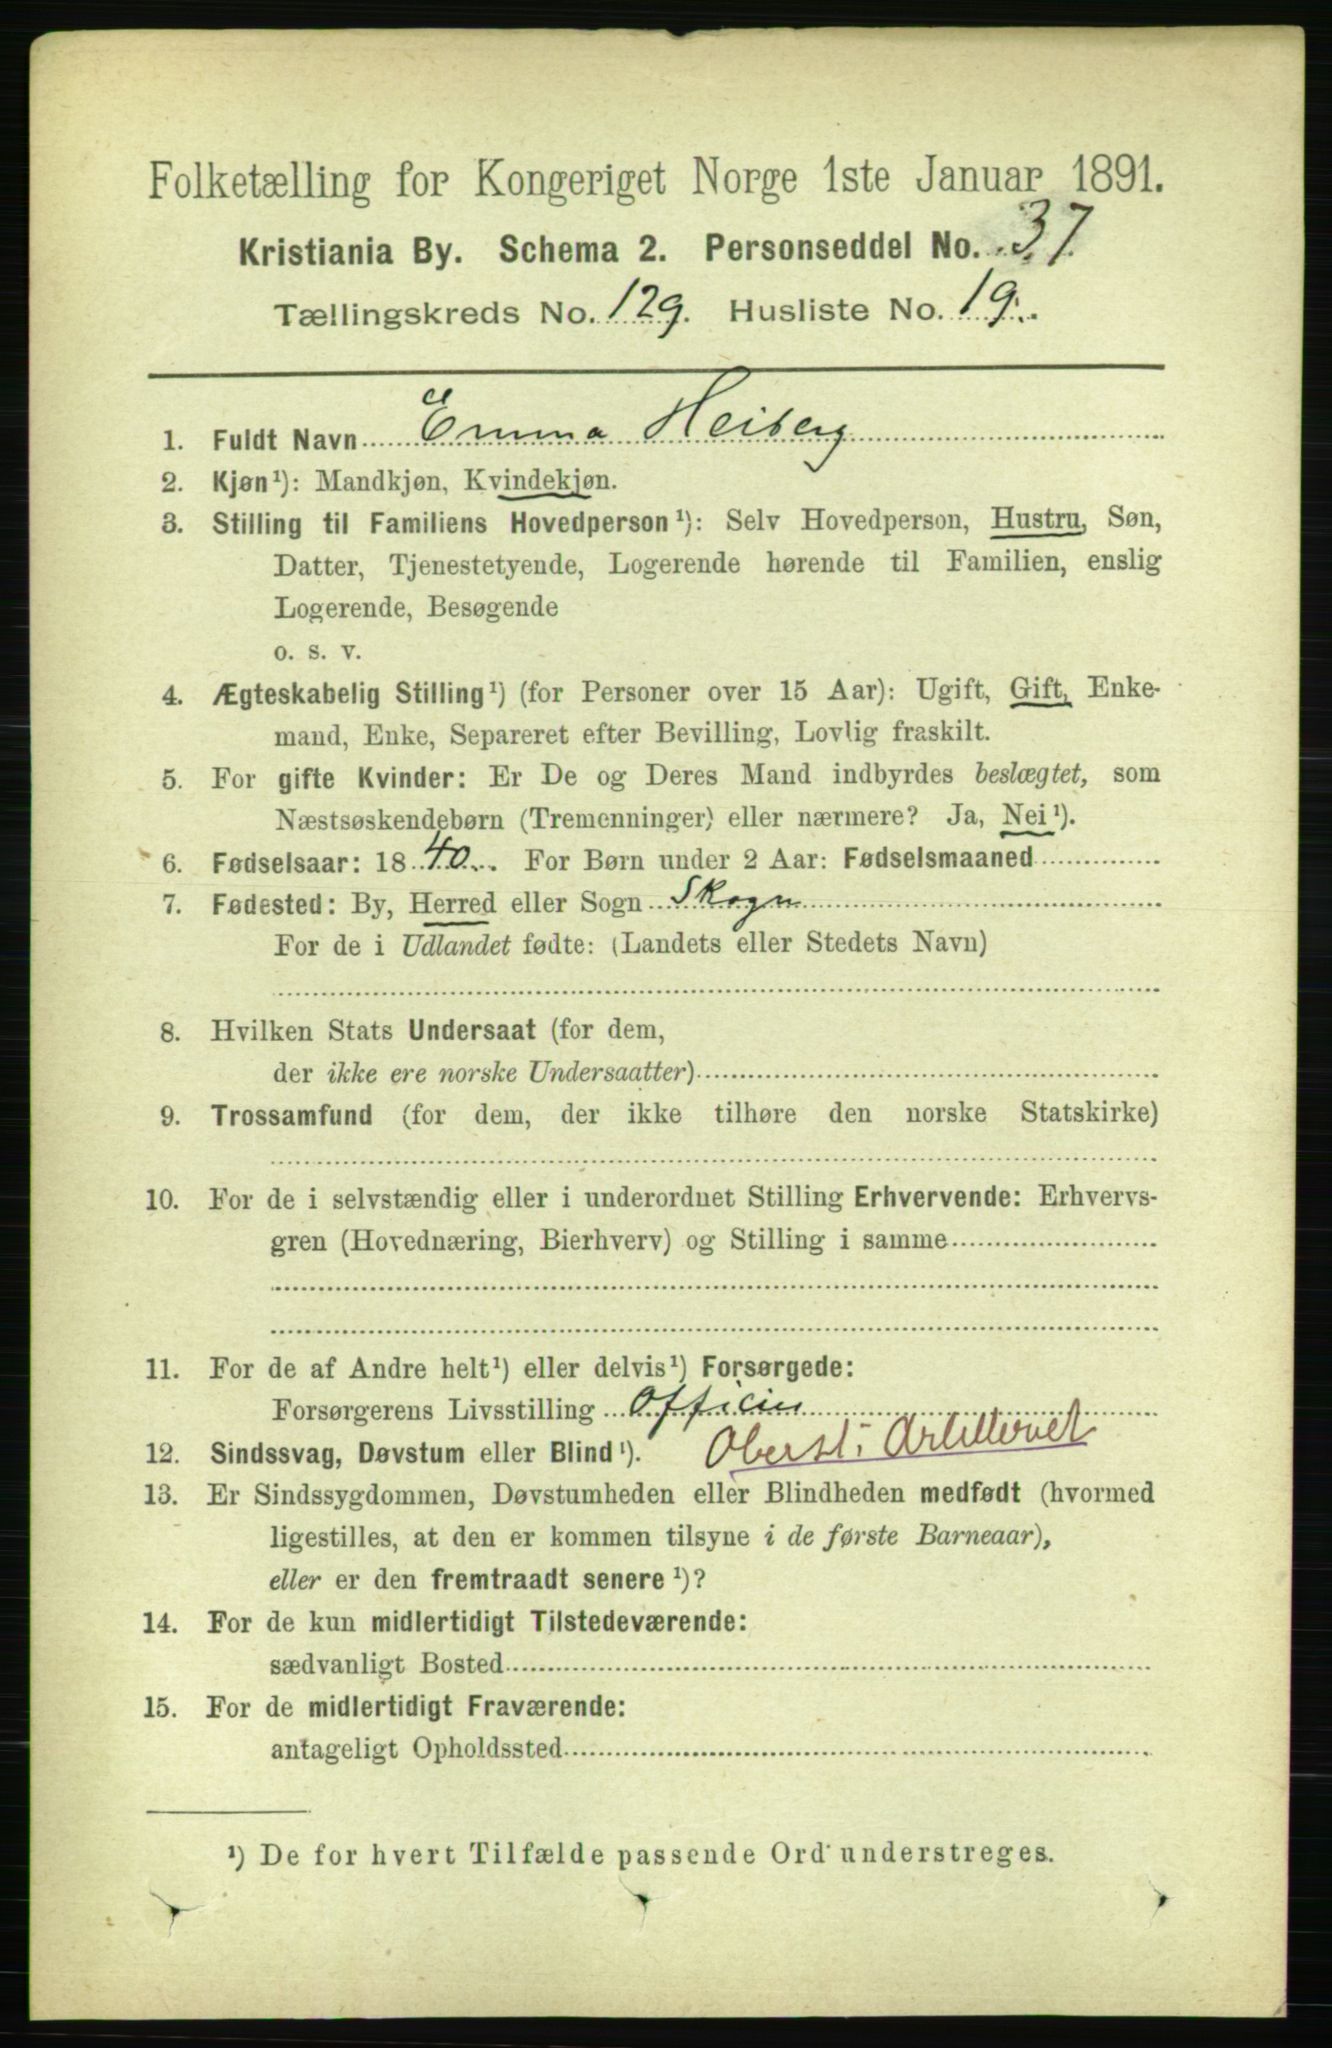 Folketælling for Kongeriget Norge 1ste Januar 1891.
Kristiania By. Schema 2. Personseddel No. 37.
Tællingskreds No. 129. Husliste No. 19.
1. Fuldt Navn Emma Heiberg
2. Kjøn¹): Mandkjøn, Kvindekjøn.
3. Stilling til Familiens Hovedperson¹): Selv Hovedperson, Hustru, Søn,
Datter, Tjenestetyende, Logerende hørende til Familien, enslig
Logerende, Besøgende
o. s. v.
4. Ægteskabelig Stilling¹) (for Personer over 15 Aar): Ugift, Gift, Enke-
mand, Enke, Separeret efter Bevilling, Lovlig fraskilt.
5. For gifte Kvinder: Er De og Deres Mand indbyrdes beslægtet, som
Næstsøskendebørn (Tremenninger) eller nærmere? Ja, Nei¹).
6. Fødselsaar: 1840. For Børn under 2 Aar: Fødselsmaaned
7. Fødested: By, Herred eller Sogn Skogn
For de i Udlandet fødte: (Landets eller Stedets Navn)
8. Hvilken Stats Undersaat (for dem,
der ikke ere norske Undersaatter)
9. Trossamfund (for dem, der ikke tilhøre den norske Statskirke)
10. For de i selvstændig eller i underordnet Stilling Erhvervende: Erhvervs-
gren (Hovednæring, Bierhverv) og Stilling i samme
11. For de af Andre helt¹) eller delvis¹) Forsørgede:
Forsørgerens Livsstilling Officier
12. Sindssvag, Døvstum eller Blind¹). Oberst i Artilleriet
13. Er Sindssygdommen, Døvstumheden eller Blindheden medfødt (hvormed
ligestilles, at den er kommen tilsyne i de første Barneaar),
eller er den fremtraadt senere¹)?
14. For de kun midlertidigt Tilstedeværende:
sædvanligt Bosted
15. For de midlertidigt Fraværende:
antageligt Opholdssted
¹) De for hvert Tilfælde passende Ord understreges.